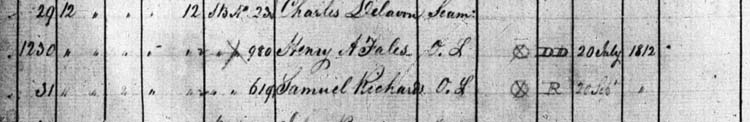 29 12 " " " 12 SB No 23 Charles Delavon Seam:
1230 " " " " " " " 980 Henry A Fales O. S. DD 20 July 1812
31 " " " " " " " 619 Samuel Richards O. S R 20 Sep' "